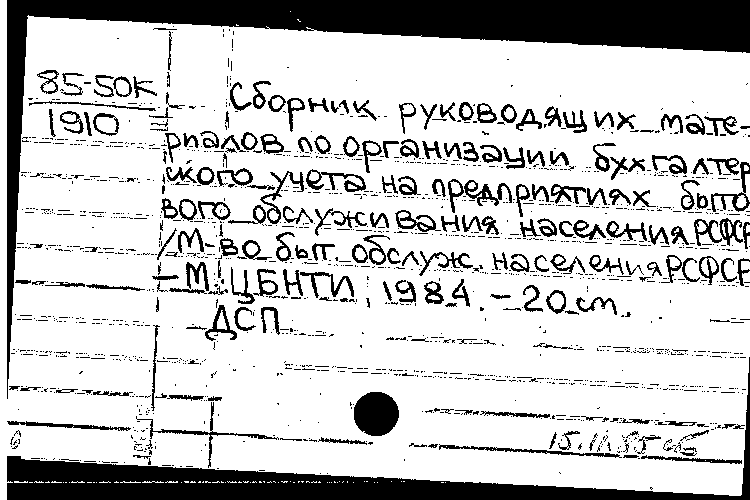 85-50К
1910
Сборник руководящих мате-
риалов по организации бухгалтер
ского учета на предприятиях быто
вого обслуживания населения РСФСР
/М-во быт. обслуж. населения РСФСР
– М.: ЦБНТИ, 1984. – 20 см.
ДСП